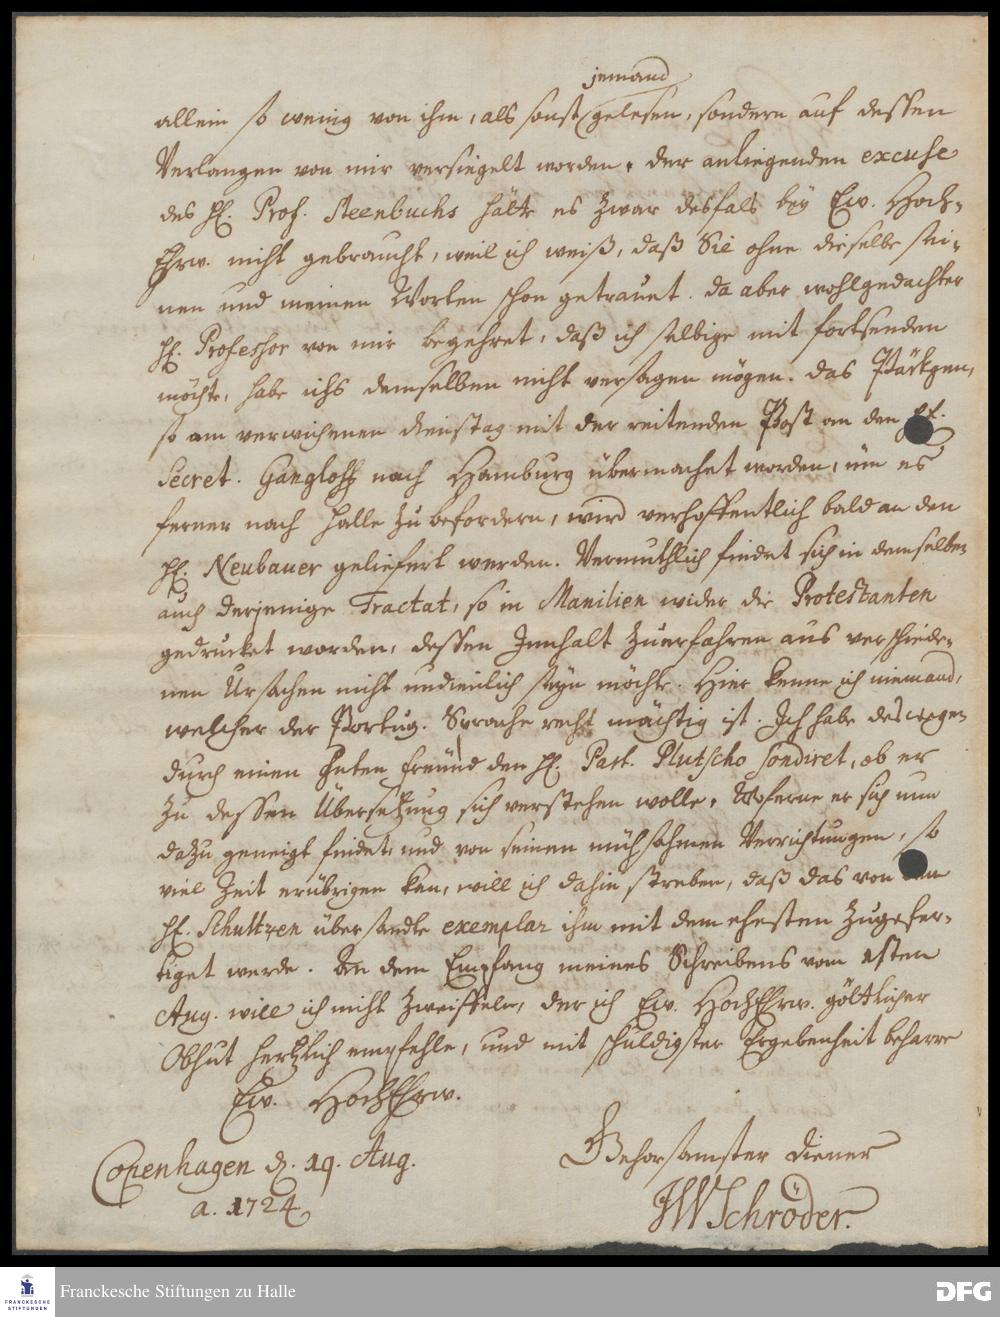 jemand
allein so wenig von ihm, als sonst gelesen, sondern auf dessen
Verlangen von mir versiegelt worden. Der anliegenden excuse
des H. Prof. Steenbuchs hätte es zwar desfals bey Ew. Hoch-
Ehrw. nicht gebraucht, weil ich weiß, daß Sie ohne dieselbe sei-
nen und meinen Worten schon getrauet. Da aber wohlgedachter
H. Professor von mir begehret, daß ich selbige mit fortsenden
möchte, habe ichs demselben nicht versagen mögen. Das Päckgen,
so am verwichenen Dienstag mit der reitenden Post an den H.
Secret. Gangloff nach Hamburg übermachet worden, üm es
ferner nach Halle zu befordern, wird verhoffentlich bald an den
H. Neubauer geliefert werden. Vermuthlich findet sich in demselben
auch derjenige Tractat, so in Manilien wider die Protestanten
gedrucket worden, dessen Innhalt zuerfahren aus verschiede-
nen Ursachen nicht undienlich seyn möchte. Hier kenne ich niemand,
welcher der Portug. Sprache recht mächtig ist. Ich habe deswegen
durch einen guten Freünd den H. Past. Plutscho sondiret, ob er
zu dessen Übersetzung sich verstehen wolle. Woferne er sich nun
dazu geneigt findet, und von seinen mühsahmen Verrichtungen, so
viel Zeit erübrigen kan, will ich dahin streben, daß das von dem
H. Schultzen übersandte exemplar ihm mit dem ehesten zugefer-
tiget werde. An dem Empfang meines Schreibens vom 1sten
Aug. will ich nicht zweiffeln, der ich Ew. HochEhrw. göttlicher
Obhut hertzlich empfehle, und mit schuldigster Ergebenheit beharre
Ew. HochEhrw.
Gehorsamster Diener
Copenhagen d. 19. Aug.
a. 1724
JWSchröder.
FRANCKESCHE STIFTUNGEN
Franckesche Stiftungen zu Halle
DFG